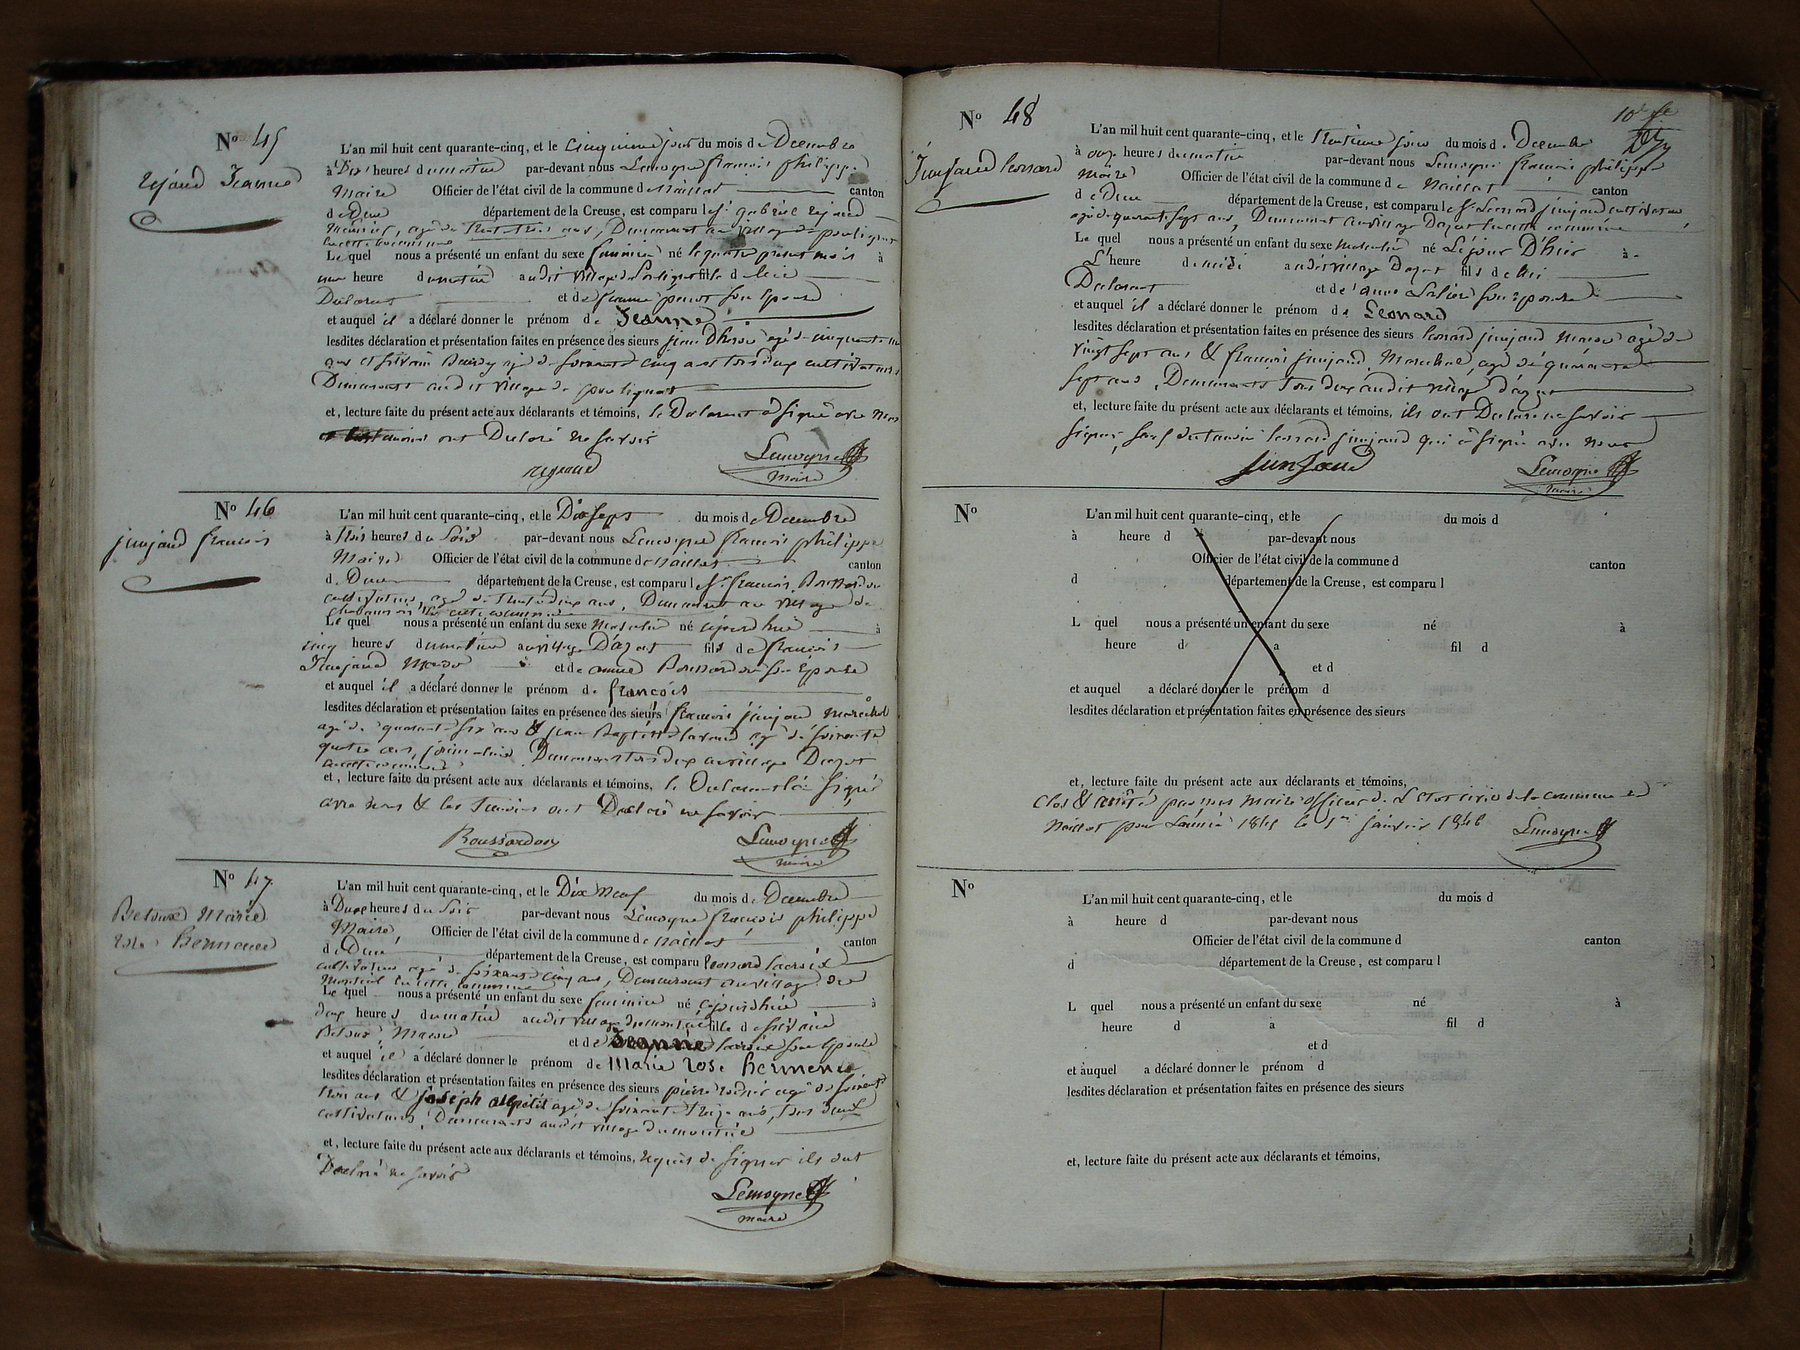 No 45
rejaud Jeanne
L'an mil huit cent quarante-cinq, et le cinquieme jour du mois de Decembre
à Dix heures du matin par-devant nous Lemoyne françois philippe
Maire Officier de l'état civil de la commune de naillat canton
de Dun département de la Creuse, est comparu le Sr gabriel rejaud
Meunier, agé de trente trois ans, Demeurant au village de poulignat
en cette commune
Le quel nous a présenté un enfant du sexe feminin né le quatre present mois à
une heure du matin audit village de poulignat fille de lui
Declarant et de jeanne son Epouse
et auquel il a déclaré donner le prénom de Jeanne
lesdites déclaration et présentation faites en présence des sieurs jean agé de cinquante
ans et silvain agé de soixante cinq ans tous deux cultivateurs
Demeurant audit village de poulignat
et, lecture faite du présent acte aux déclarants et témoins, le Declarant a signé avec nous
ont Declaré ne savoir
rejaud Lemoyne
maire
No 46
junjaud francois
L'an mil huit cent quarante-cinq, et le Dix sept du mois de Decembre
à trois heures du Soir par-devant nous Lemoyne francois philippe
Maire Officier de l'état civil de la commune de naillat canton
de Dun département de la Creuse, est comparu le Sr francois Boussardon
cultivateur agé de trente deux ans, Demeurant au village de
en cette commune
Le quel nous a présenté un enfant du sexe Masculin né à
cinq heures du matin au village D'azat fils de francois
Junjaud Maçon et de anne Boussardon son Epouse
et auquel il a déclaré donner le prénom de françois
lesdites déclaration et présentation faites en présence des sieurs francois junjaud marechal
agé de quarante six ans & jean Baptiste agé de soixante
quatre ans, Demeurant tous deux au village Dazat
en cette commune
et, lecture faite du présent acte aux déclarants et témoins, le Declarant a signé
avec nous & les temoins ont Declaré ne savoir
Boussardon Lemoyne
maire
No 47
Betoux Marie
rose hermence
L'an mil huit cent quarante-cinq, et le Dix neuf du mois de Decembre
à Deux heures du Soir par-devant nous Lemoyne françois philippe
Maire Officier de l'état civil de la commune de naillat canton
de Dun département de la Creuse, est comparu leonard lacroix
cultivateur agé de soixante cinq ans, Demeurant au village du
en cette commune
Le quel nous a présenté un enfant du sexe feminin né à
deux heures du matin audit village fille de silvain
Betoux, Maçon et de Jeanne lacroix son Epouse
et auquel il a déclaré donner le prénom de Marie rose hermence
lesdites déclaration et présentation faites en présence des sieurs pierre agé de soixante
trois ans & joseph agé de soixante treize ans, tous deux
cultivateurs, Demeurants audit village
et, lecture faite du présent acte aux déclarants et témoins, requis de signer ils ont
Declaré ne savoir
Lemoyne
maire
10e fe
No 48
Junjaud leonard
L'an mil huit cent quarante-cinq, et le trentieme jour du mois de Decembre
à onze heures du matin par-devant nous Lemoyne francois philippe
Maire Officier de l'état civil de la commune de naillat canton
de Dun département de la Creuse, est comparu le Sr Leonard junjaud cultivateur
agé de quarante sept ans, Demeurant au village Dazat en cette commune
Le quel nous a présenté un enfant du sexe masculin né Le jour D'hier à
L'heure de midi audit village Dazat fils de lui
Declarant et de anne son Epouse
et auquel il a déclaré donner le prénom de Léonard
lesdites déclaration et présentation faites en présence des sieurs leonard junjaud Maçon agé de
vingt sept ans & francois junjaud, Marechal, agé de quarante
sept ans, Demeurants tous deux audit village d'azat
et, lecture faite du présent acte aux déclarants et témoins, ils ont Declaré ne savoir
signer, sauf le temoin leonard junjaud qui a signé avec nous
Junjaud Lemoyne
maire
No
L'an mil huit cent quarante-cinq, et le du mois d
à heure d par-devant nous
Officier de l'état civil de la commune d canton
d département de la Creuse, est comparu l
L quel nous a présenté un enfant du sexe né à
heure d a fil d
et d
et auquel a déclaré donner le prénom d
lesdites déclaration et présentation faites en présence des sieurs
et, lecture faite du présent acte aux déclarants et témoins,
Clos & arrêté par nous maire officier de L'Etat civil de la commune de
Naillat pour L'année 1845 le 1er janvier 1846 Lemoyne
No
L'an mil huit cent quarante-cinq, et le du mois d
à heure d par-devant nous
Officier de l'état civil de la commune d canton
d département de la Creuse, est comparu l
L quel nous a présenté un enfant du sexe né à
heure d a fil d
et d
et auquel a déclaré donner le prénom d
lesdites déclaration et présentation faites en présence des sieurs
et, lecture faite du présent acte aux déclarants et témoins,